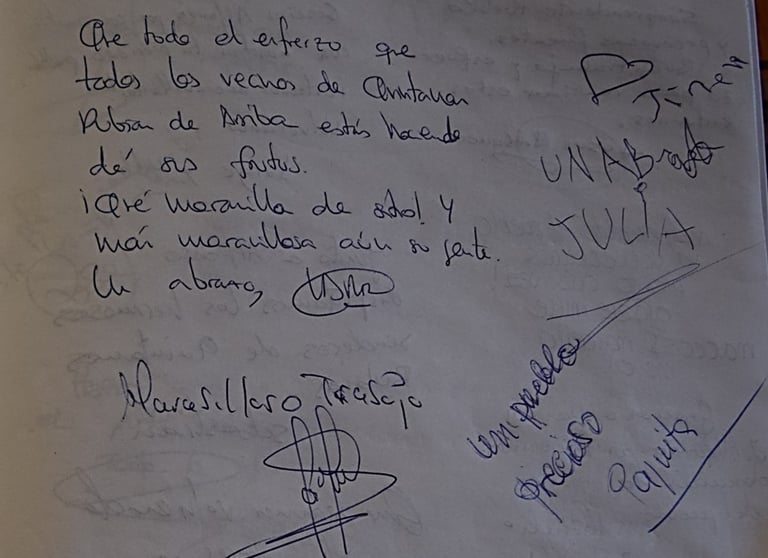 Que todo el esfuerzo que
todos los vecinos de Quintanar
Rubín de Arriba estás haciendo
dé sus frutos.
¡Qué maravilla de sitio! Y
más maravillosa aún su gente.
Un abrazo,
Maravilloso Trabajo
Jimena
UN ABrazo
JULIA
Un pueblo
precioso
Paquita